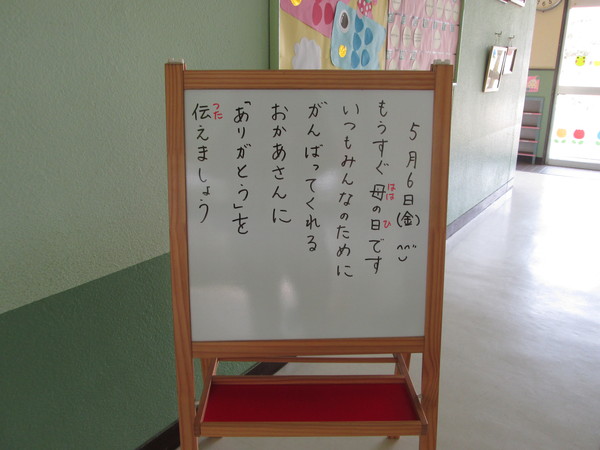 5月6日(金)
もうすぐ母の日です
はは
ひ
いつもみんなのために
がんばってくれる
おかあさんに
「ありがとう」を
伝えましょう
つた